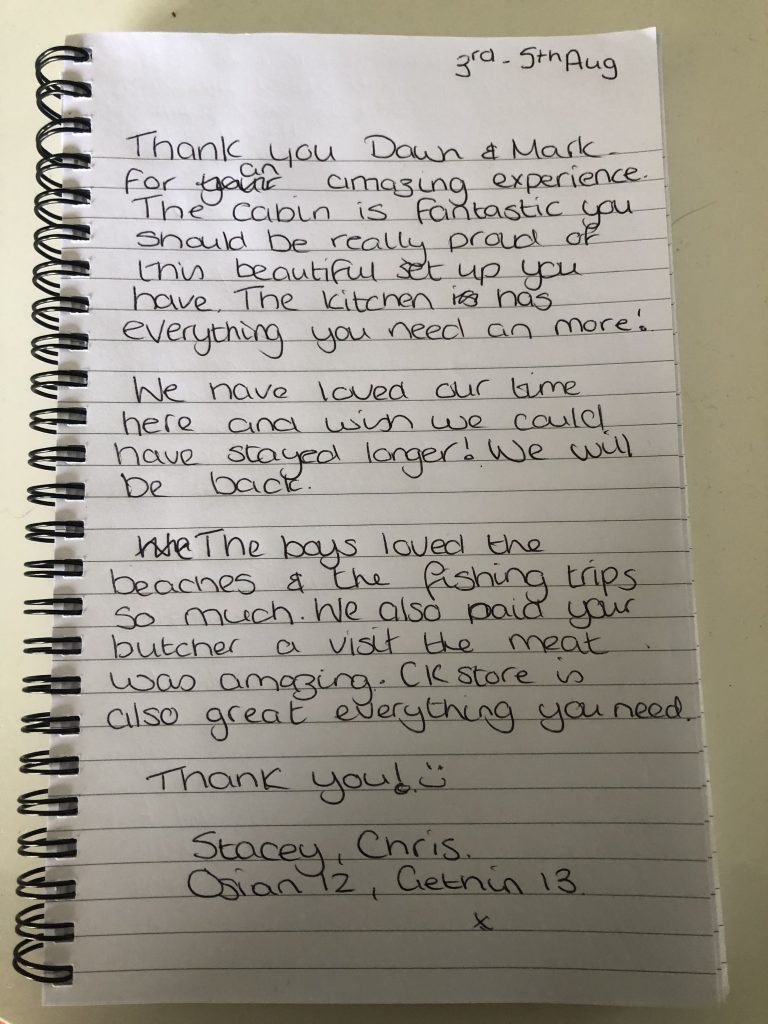 3rd - 5th Aug
Thank you Dawn & Mark
for an amazing experience.
The cabin is fantastic you
should be really proud of
this beautiful set up you
have. The kitchen has
everything you need an more!
We have loved our time
here and wish we could
have stayed longer! We will
be back.
The boys loved the
beaches & the fishing trips
so much. We also paid your
butcher a visit the meat
was amazing. CK store is
also great everything you need.
Thank you! :)
Stacey, Chris.
Osian 12, Gethin 13.
x